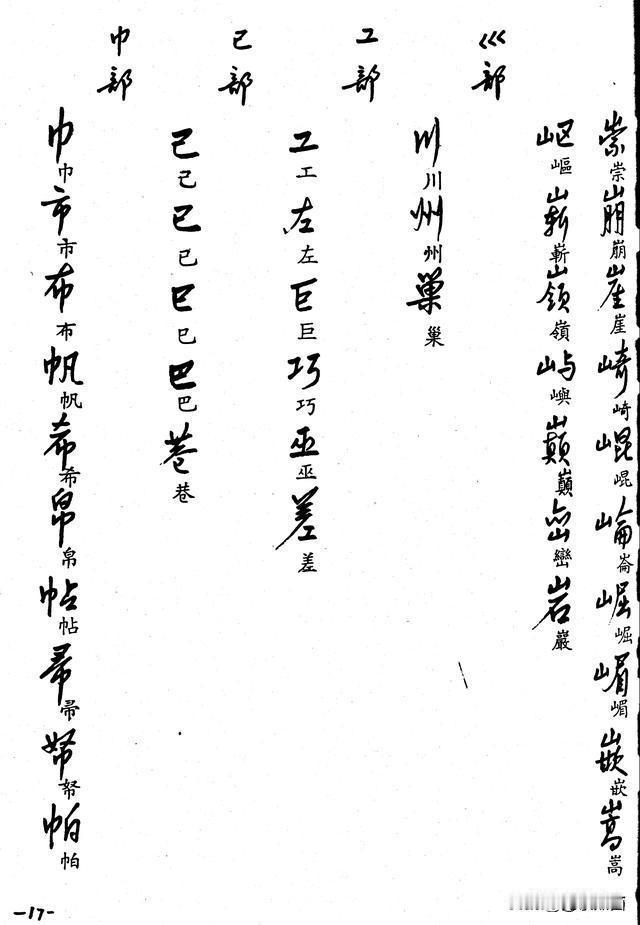 崇崇崩崩崖崖崎崎崐崐崘崙崛崛嵋嵋嵌嵌嵩嵩
岖嶇嶄嶄嶺嶺屿嶼巔巔峦巒岩巖
巛部
川川州州巢巢
工部
工工左左巨巨巧巧巫巫差差
己部
己己已已巳巳巴巴巷巷
巾部
巾巾市市布布帆帆希希帛帛帖帖帚帚帑帑帕帕
-17-